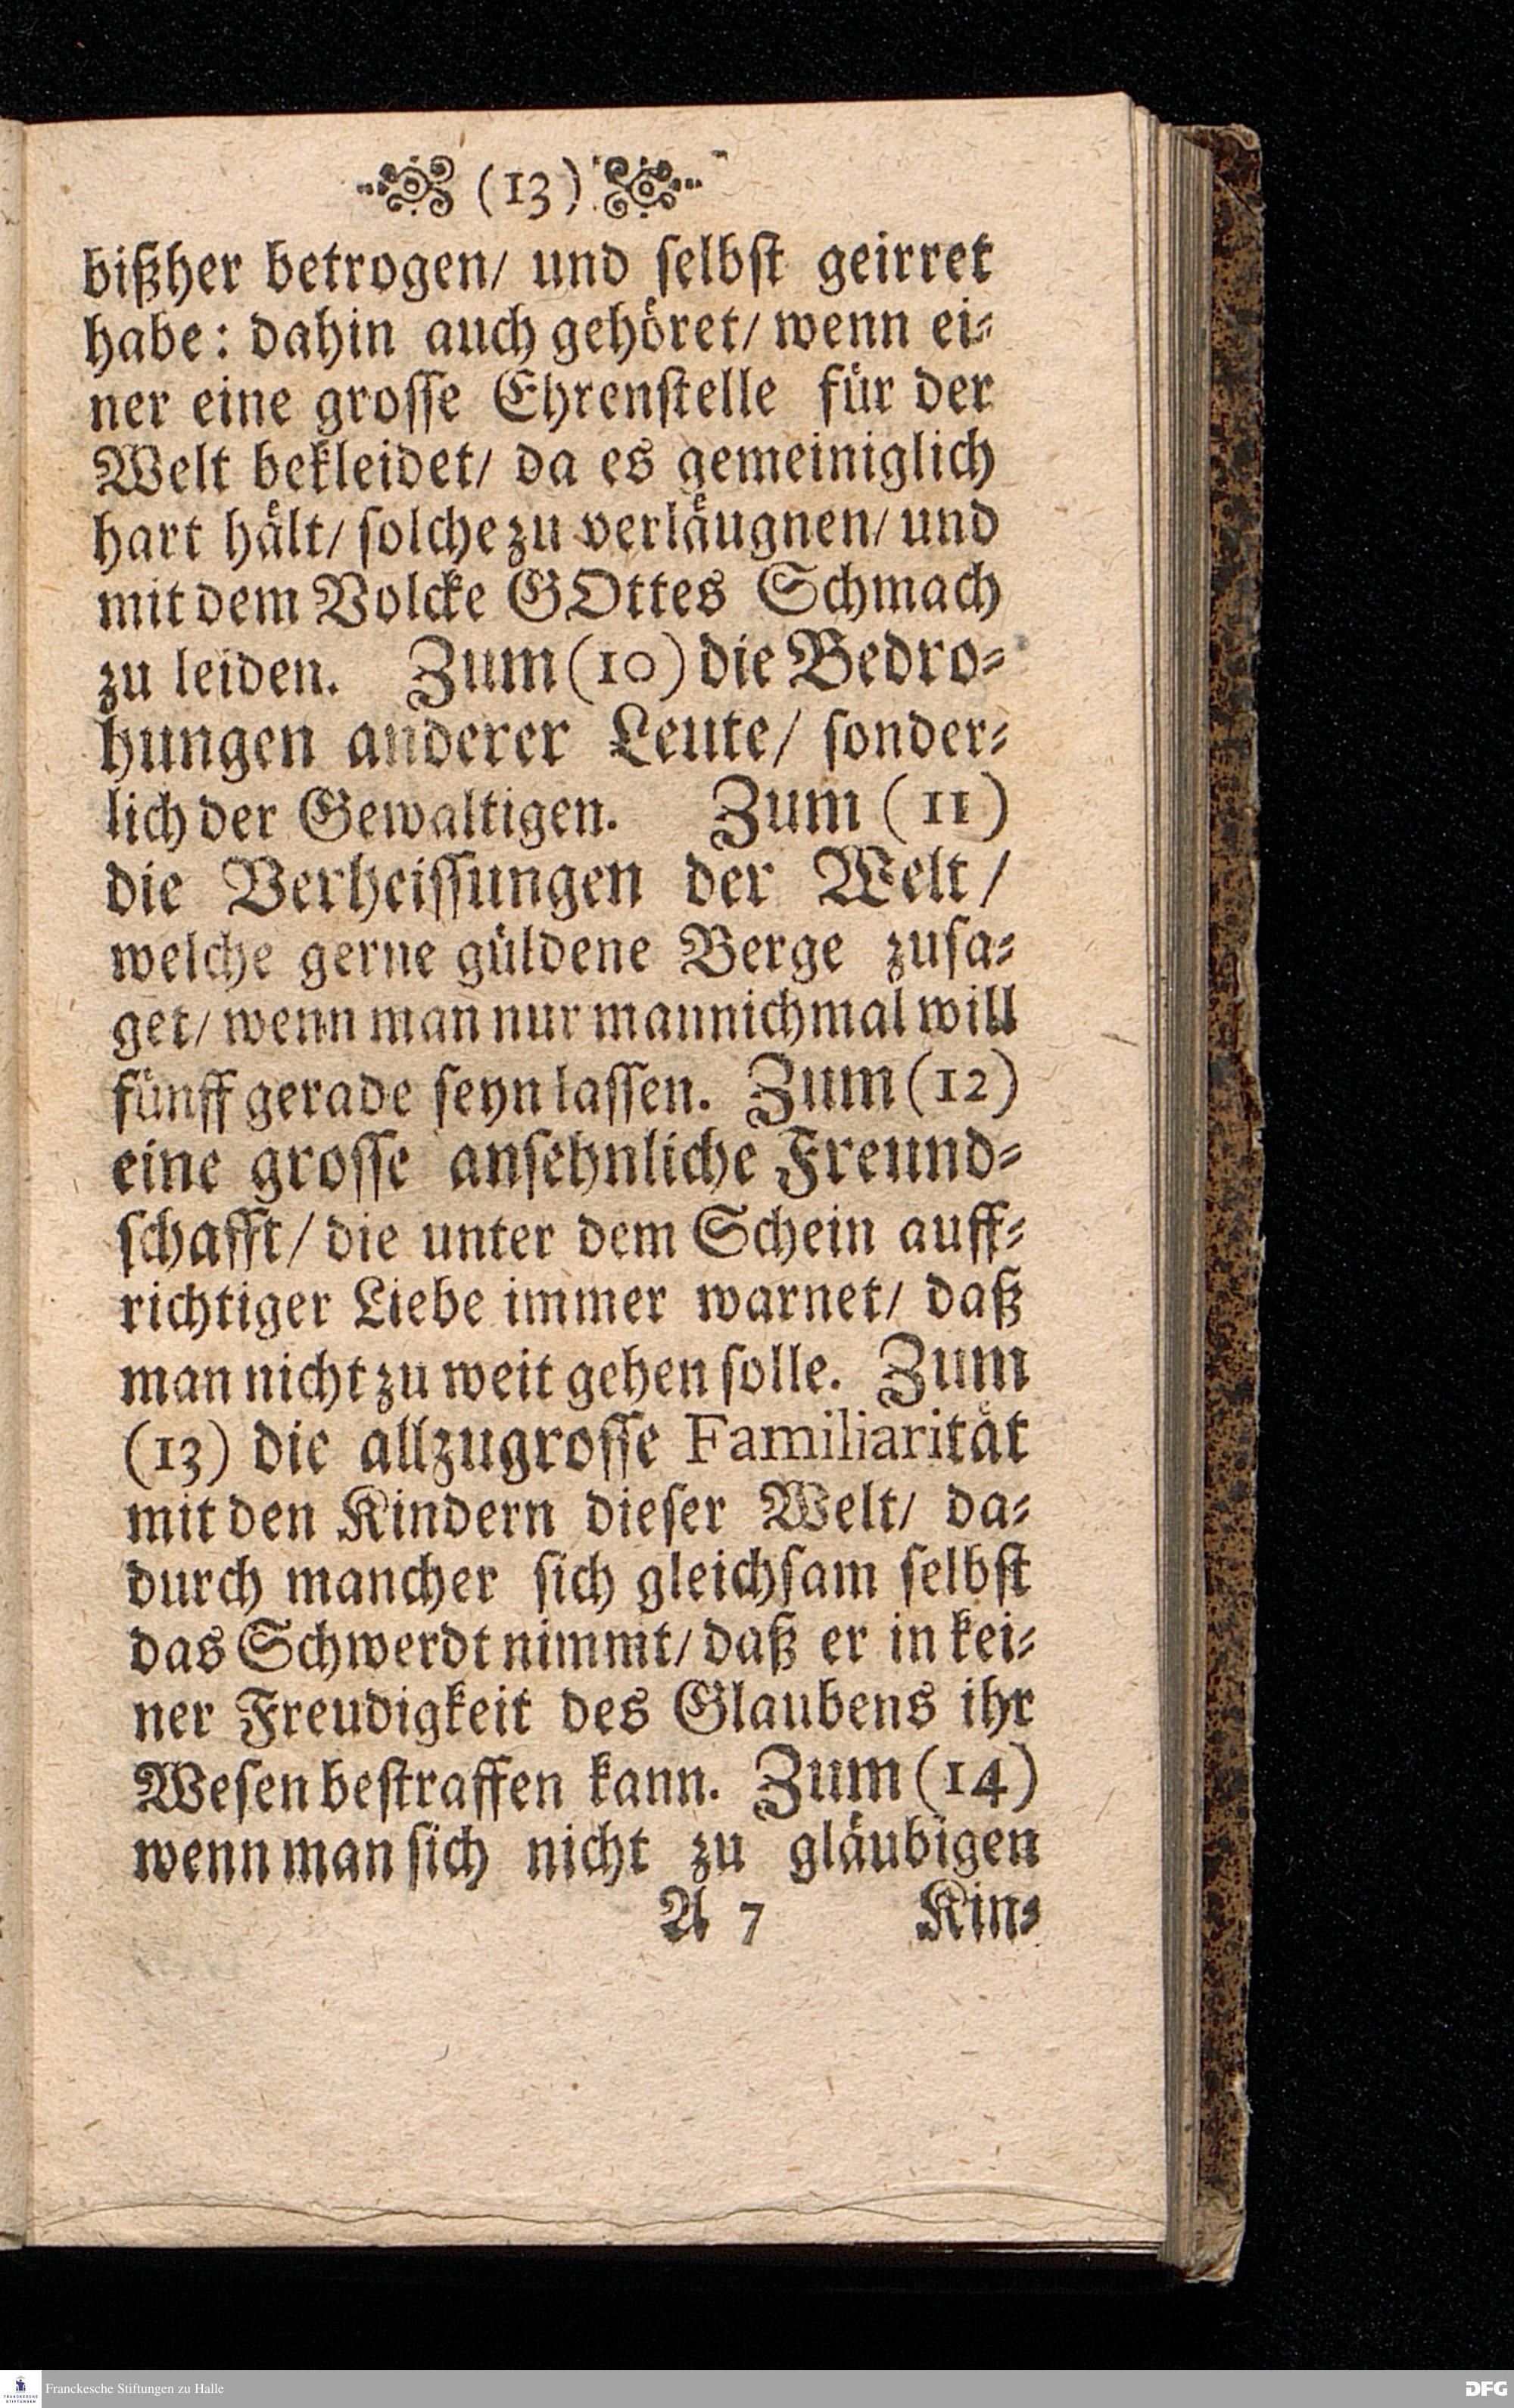 (13)
bißher betrogen/ und selbst geirret
habe: dahin auch gehöret/ wenn ei-
ner eine grosse Ehrenstelle für der
Welt bekleidet/ da es gemeiniglich
hart hält/ solche zu verläugnen/ und
mit dem Volcke GOttes Schmach
zu leiden. Zum (10) die Bedro-
hungen anderer Leute/ sonder-
lich der Gewaltigen. Zum (11)
die Verheissungen der Welt/
welche gerne güldene Berge zusa-
get/ wenn man nur mannichmal will
fünff gerade seyn lassen. Zum (12)
eine grosse ansehnliche Freund-
schafft/ die unter dem Schein auff-
richtiger Liebe immer warnet/ daß
man nicht zu weit gehen solle. Zum
(13) die allzugrosse Familiarität
mit den Kindern dieser Welt/ da-
durch mancher sich gleichsam selbst
das Schwerdt nimmt/ daß er in kei-
ner Freudigkeit des Glaubens ihr
Wesen bestraffen kann. Zum (14)
wenn man sich nicht zu gläubigen
A 7 Kin-
FRANCKESCHE STIFTUNGEN
Franckesche Stiftungen zu Halle
DFG